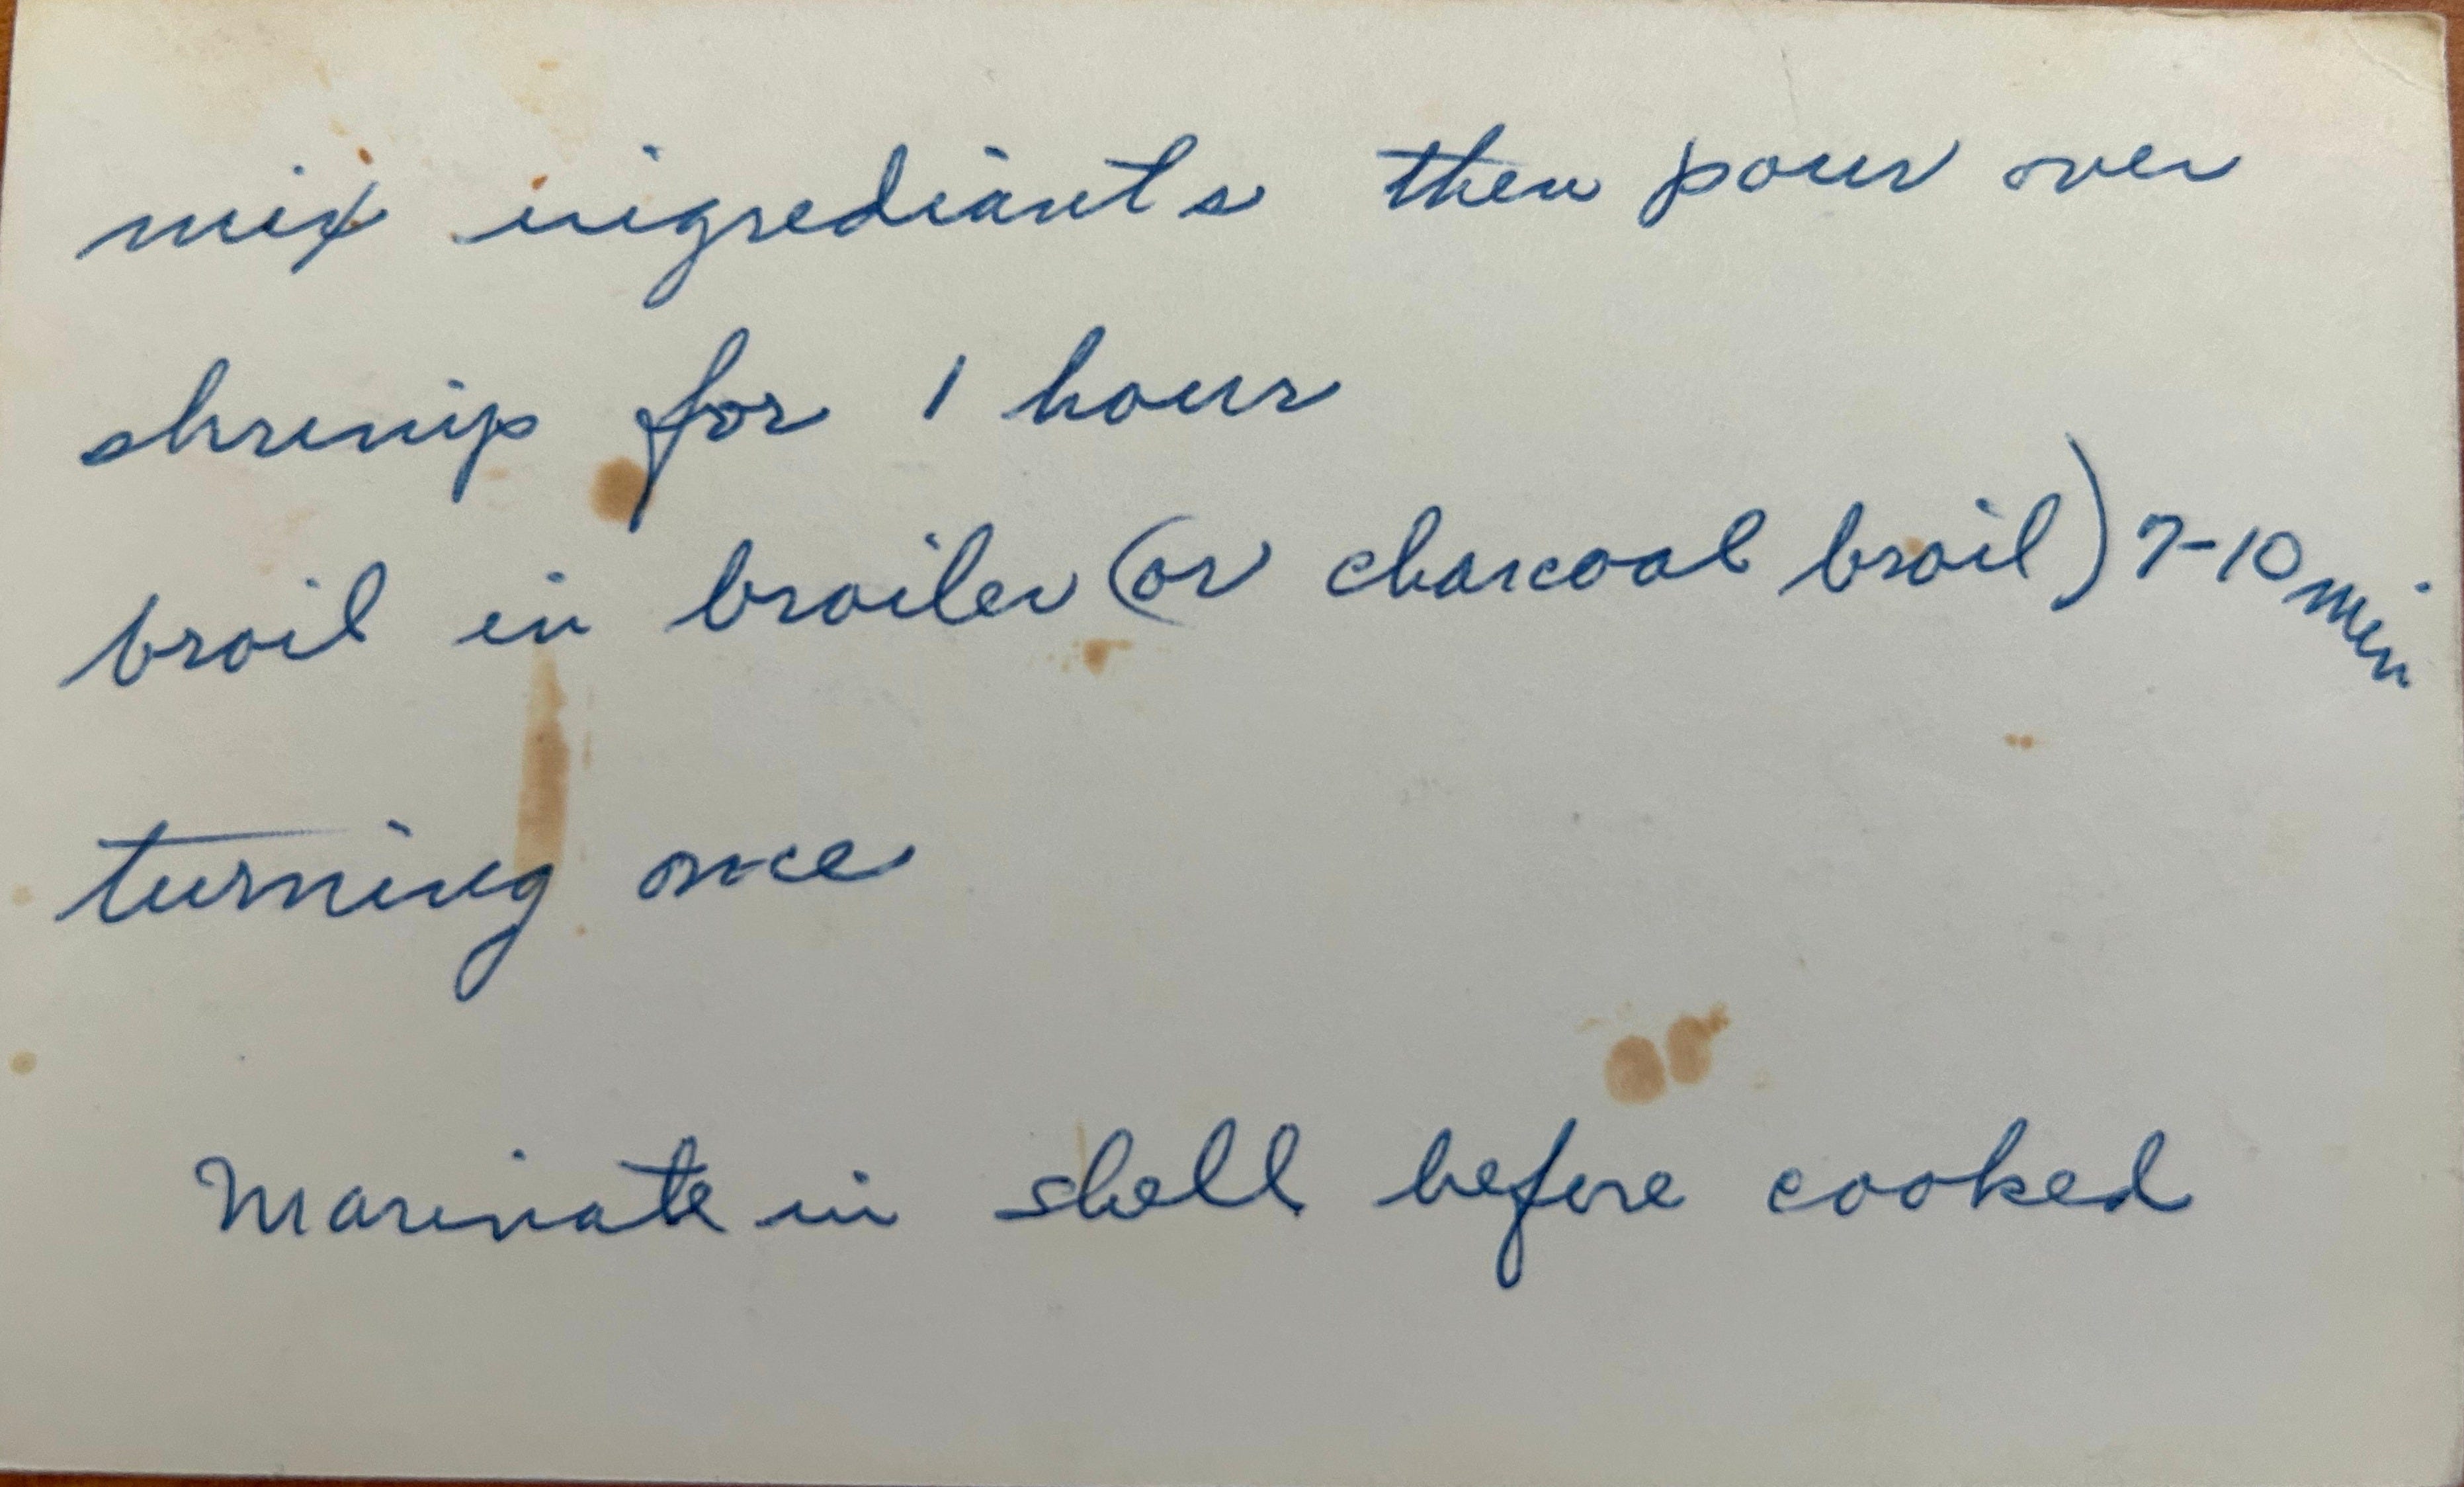 mix ingrediants then pour over
shrimp for 1 hour
broil in broiler (or charcoal broil) 7-10 min
turning once
Marinate in shell before cooked